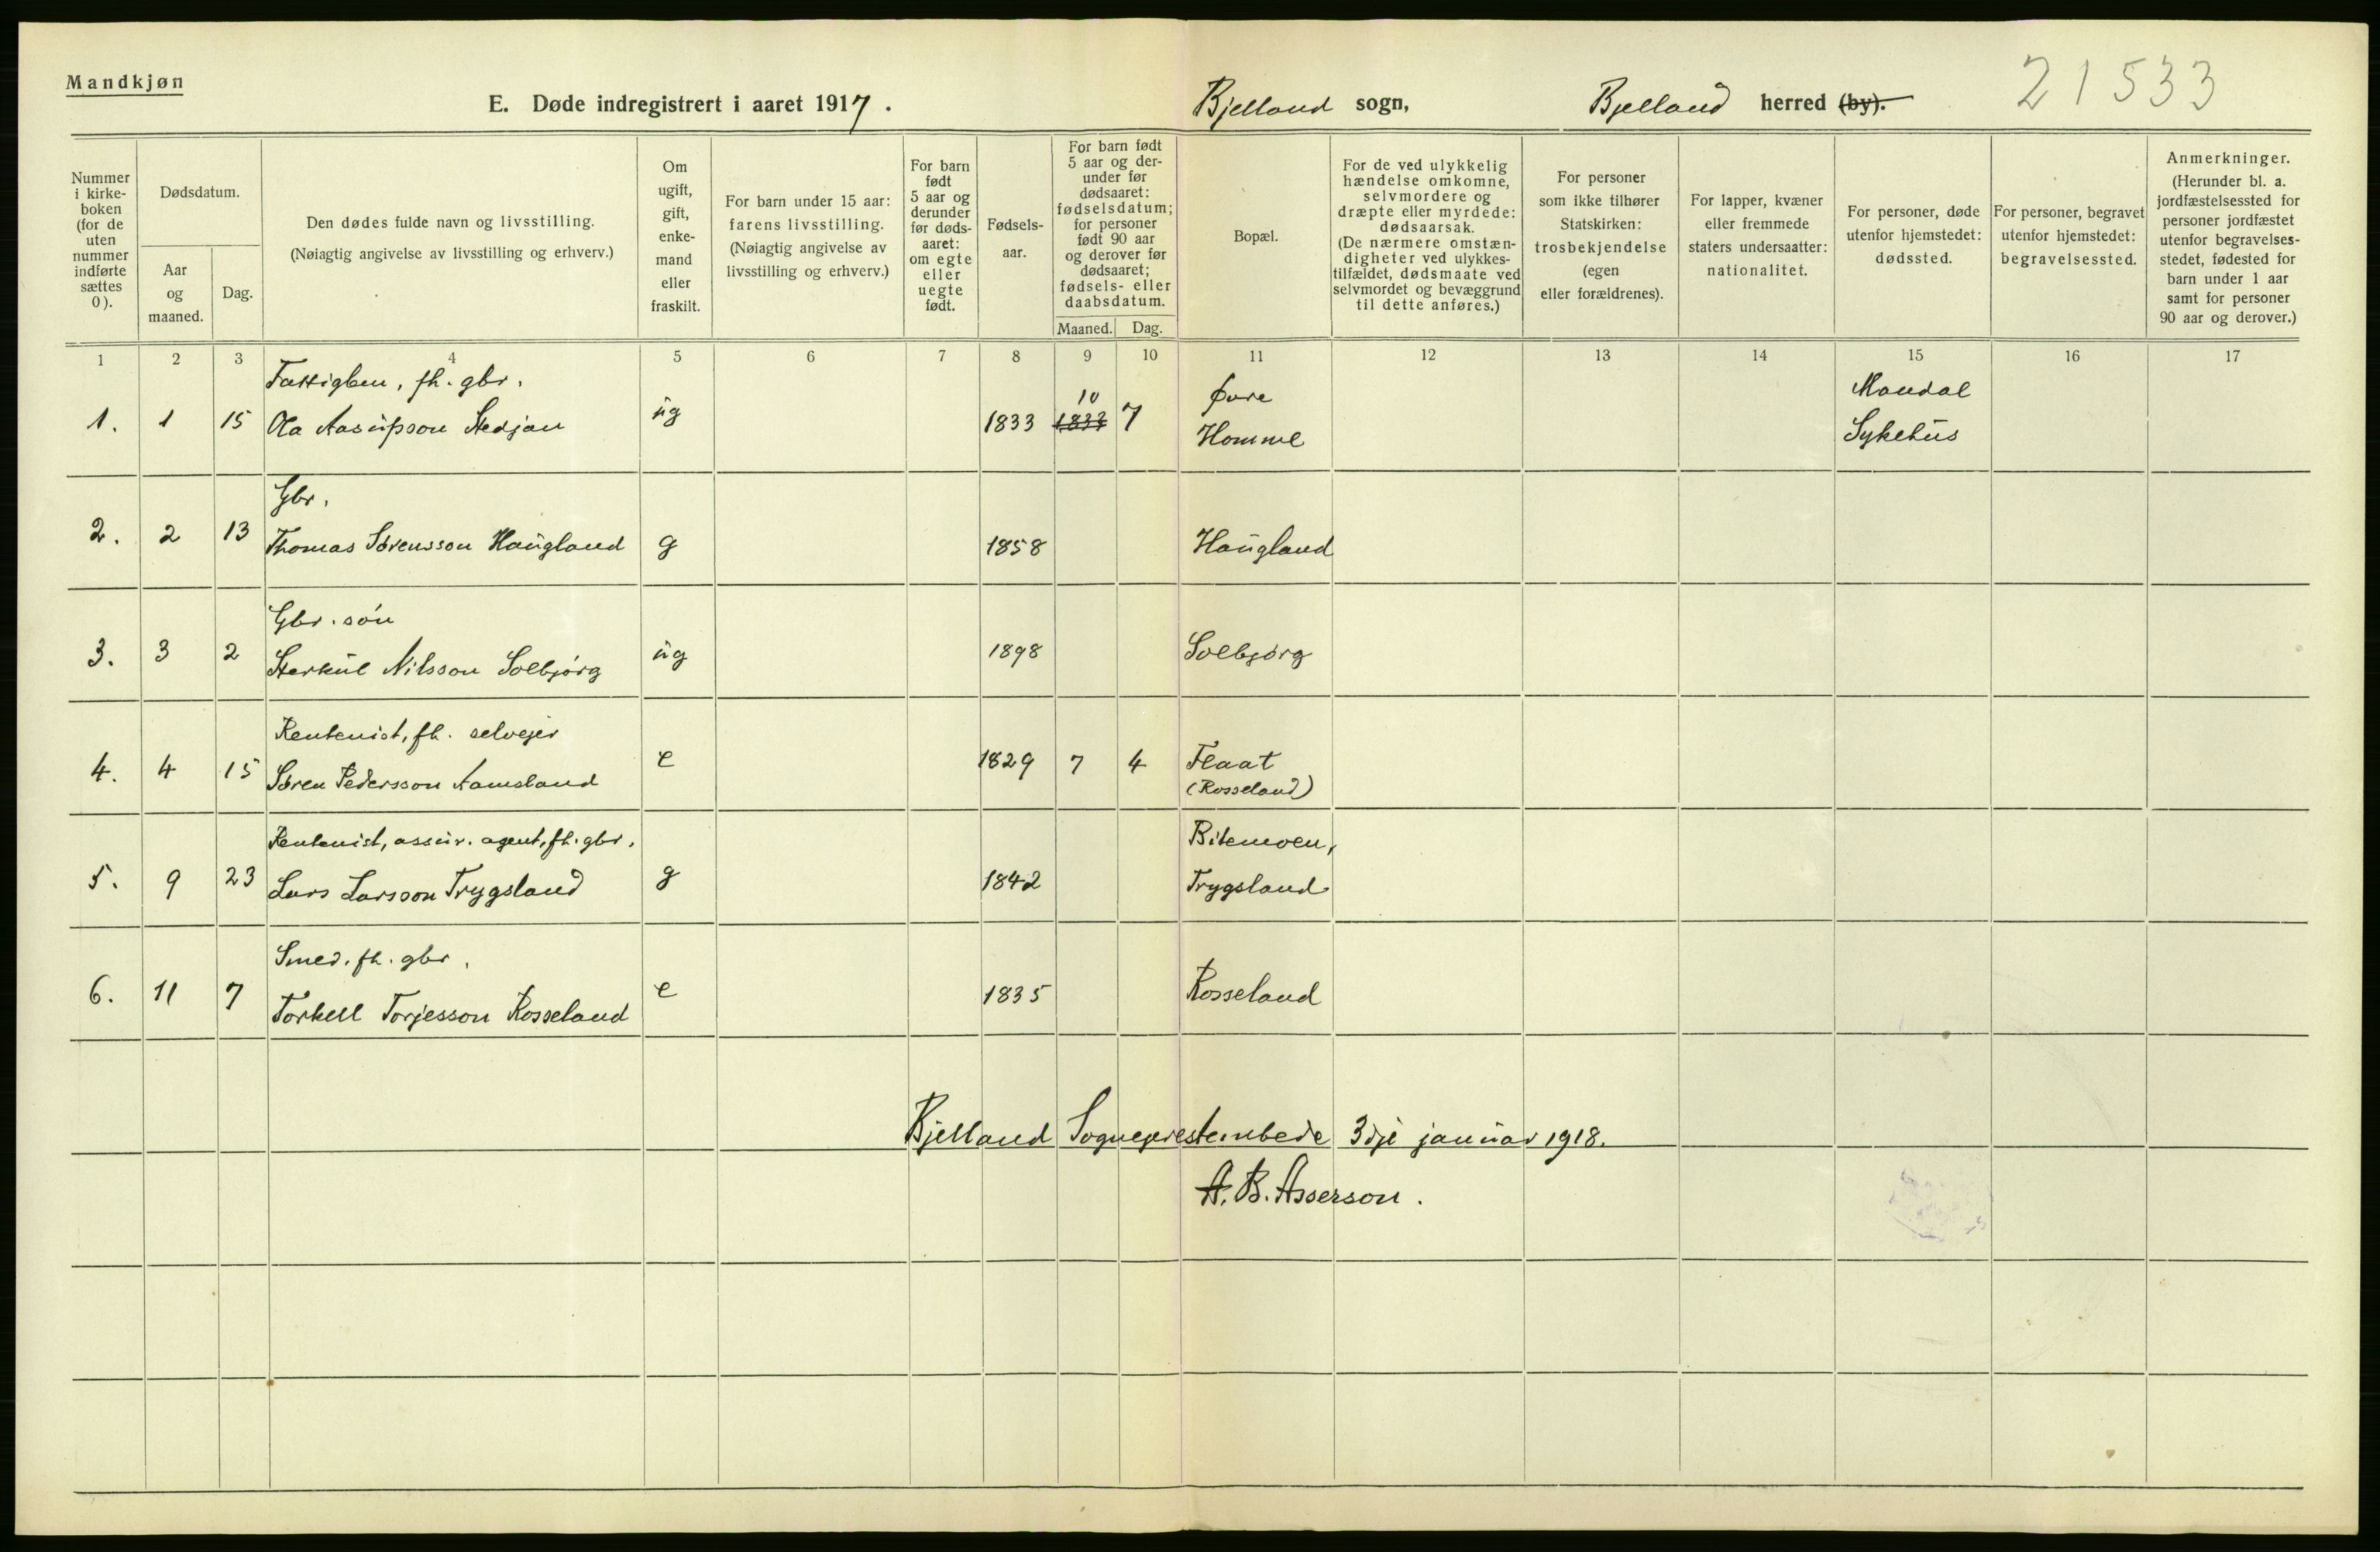 Mandkjøn
E. Døde indregistrert i aaret 1917.
Bjelland sogn,
Bjelland herred (by).
21533
Nummer i kirke-boken (for de uten nummer indførte sættes 0).
Dødsdatum.
Aar og maaned.
Dag.
Den dødes fulde navn og livsstilling.
(Nøiagtig angivelse av livsstilling og erhverv.)
Om ugift, gift, enke-mand eller fraskilt.
For barn under 15 aar: farens livsstilling.
(Nøiagtig angivelse av livsstilling og erhverv.)
For barn født 5 aar og derunder før døds-aaret: om egte eller uegte født.
Fødsels-aar.
For barn født 5 aar og der-under før dødsaaret: fødselsdatum; for personer født 90 aar og derover før dødsaaret; fødsels- eller daabsdatum.
Maaned. Dag.
Bopæl.
For de ved ulykkelig hændelse omkomne, selvmordere og dræpte eller myrdede: dødsaarsak.
(De nærmere omstæn-digheter ved ulykkes-tilfældet, dødsmaate ved selvmordet og bevæggrund til dette anføres.)
For personer som ikke tilhører Statskirken: trosbekjendelse (egen eller forældrenes).
For lapper, kvæner eller fremmede staters undersaatter: nationalitet.
For personer, døde utenfor hjemstedet: dødssted.
For personer, begravet utenfor hjemstedet: begravelsessted.
Anmerkninger.
(Herunder bl. a. jordfæstelsessted for personer jordfæstet utenfor begravelses-stedet, fødested for barn under 1 aar samt for personer 90 aar og derover.)
1 2 3 4 5 6 7 8 9 10 11 12 13 14 15 16 17
Fattiglem, fh. gbr. 10 Øvre Mandal
1. 1 15 Ola Aasulfsson Stedjan ug 1833 1833 7 Homme Sykehus
Gbr.
2. 2 13 Thomas Sørensson Haugland g 1858 Haugland
Gbr. søn
3. 3 2 Sterkul Nilsson Solbjørg ug 1898 Solbjørg
Rentenist, fh. selvejer
4. 4 15 Søren Pedersson Aamsland e 1829 7 4 Flaat
(Rosseland)
Rentenist, assur. agent, fh. gbr. Bitemoen,
5. 9 23 Lars Larsson Trygsland g 1842 Trygsland
Smed. fh. gbr.
6. 11 7 Torkell Torjesson Rosseland e 1835 Rosseland
Bjelland Sogneprestembede 3dje januar 1918.
A. B. Asserson.